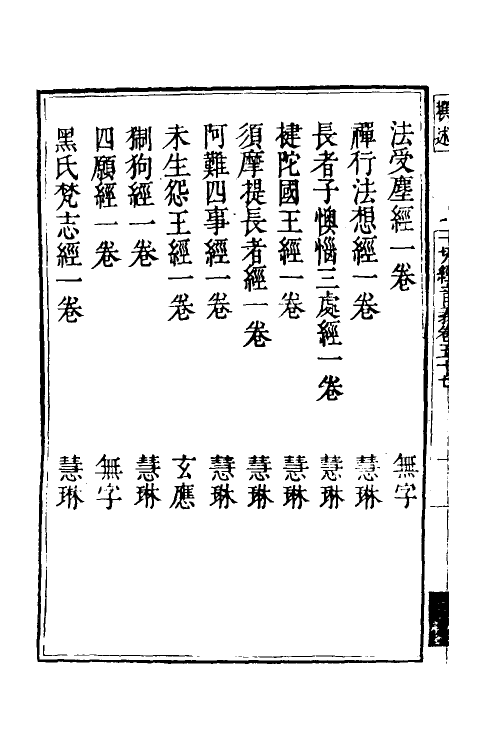 法受塵經一卷　無字
禪行法想經一卷　慧琳
長者子懊惱三處經一卷　慧琳
犍陀國王經一卷　慧琳
須摩提長者經一卷　慧琳
阿難四事經一卷　慧琳
未生怨王經一卷　玄應
猘狗經一卷　慧琳
四願經一卷　無字
黑氏梵志經一卷　慧琳